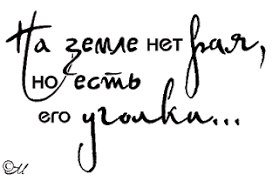 На земле нет рая,
но есть
его уголки...
©М